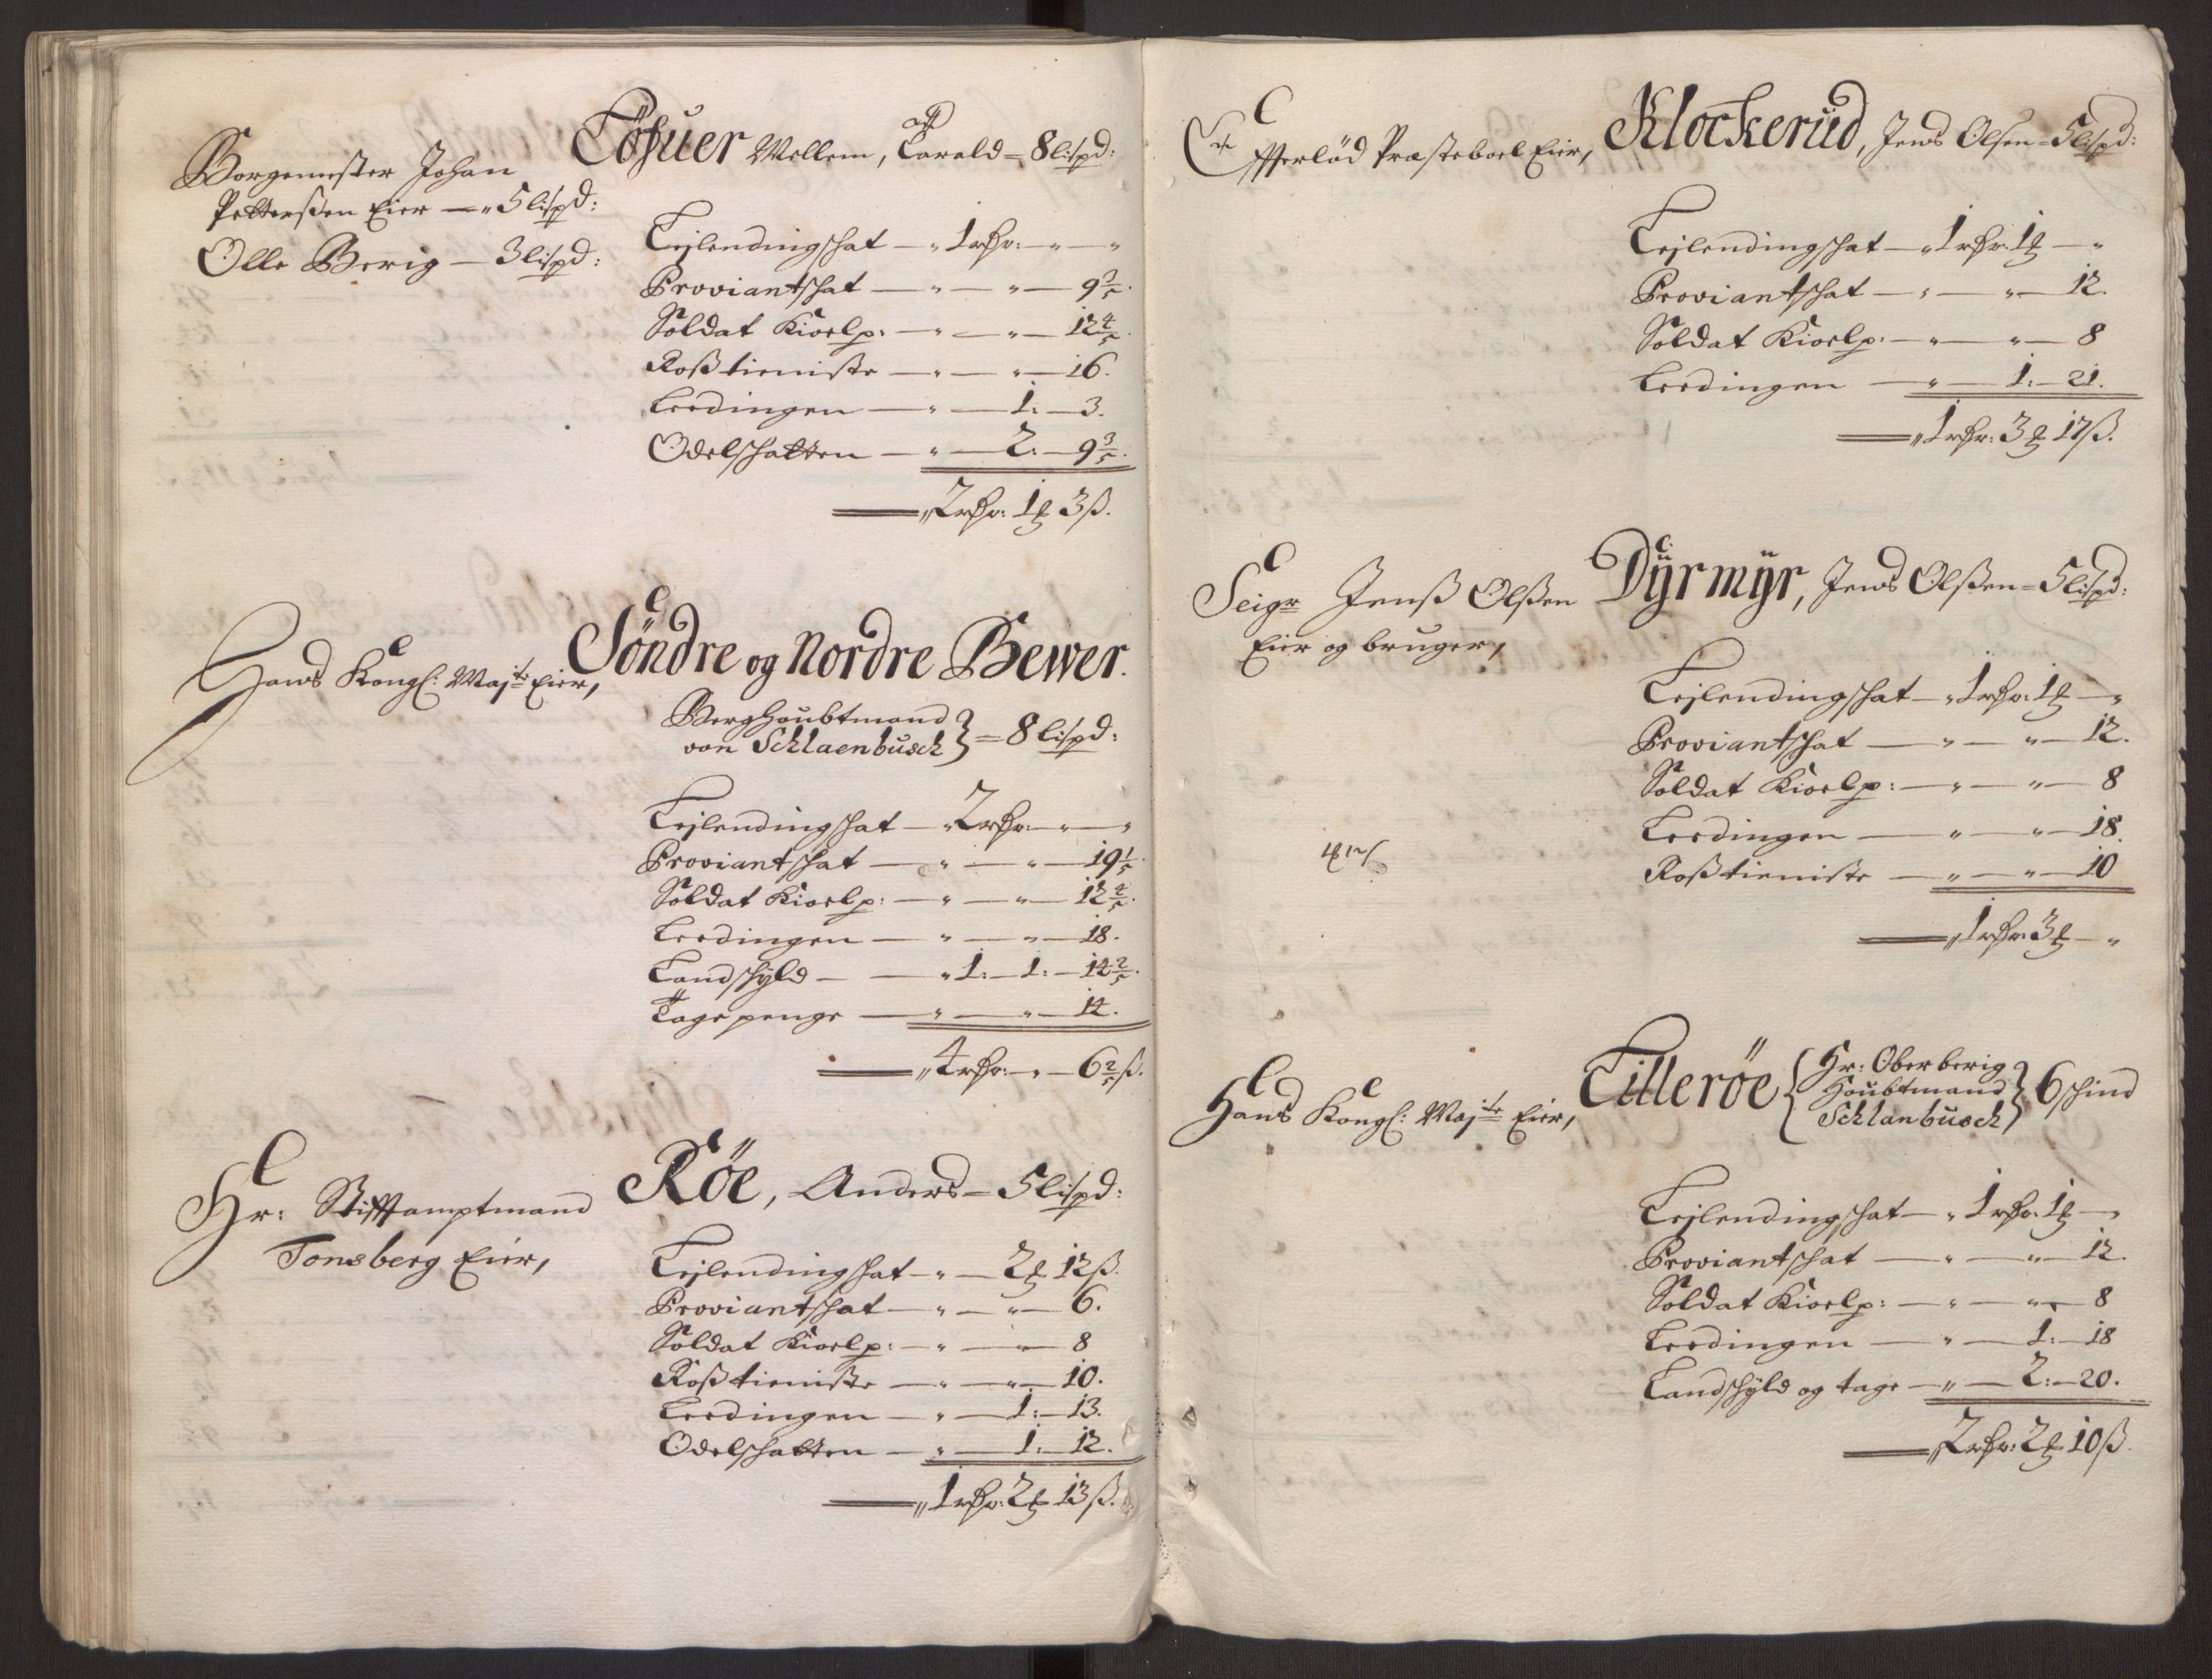 Borgemester Johan
Petterßen Eier — " 5 lispd:
Olle Berig — 3 lispd:
Tößuer Mellem, Tarald = 8 lispd:
Lejlendingschat — " 1 rdr: — " — "
Proviantschat — " — " — 9 3/5.
Soldat Kioelp: — " — " — 12 4/5.
Roßtieniste — " — " — 16.
Leedingen — " — 1: — 3.
Odelschatten — " — 2: — 9 3/5.
" 2 rdr: 1 ₰ 3 ß.
Hans Kongl: Majts Eier,
Söndre og Nordre Bewer.
Berghoubtmand
von Schlaenbusch } = 8 lispd:
Lejlendingschat — " 2 rdr: — " — "
Proviantschat — " — " — 19 1/5.
Soldat Kioelp: — " — " — 12 4/5.
Leedingen — " — " — 18.
Landschyld — " 1: — 1: — 14 2/5.
Tage penge — " — " — 14.
" 4 rdr: — " — 6 2/5 ß.
Hr: Stifftamptmand
Tonsberg Eier,
Röe, Anders = 5 lispd:
Lejlendingschat — " — 2 ₰ 12 ß.
Proviantschat — " — " — 6.
Soldat Kioelp: — " — " — 8
Roßtieniste — " — " — 10.
Leedingen — " — 1: — 13.
Odelschatten — " — 1: — 12.
" 1 rdr: 2 ₰ 13 ß.
Efferlöd Præsteboel Eier,
Klockerud, Jens Olsen = 5 lispd:
Lejlendingschat — " 1 rdr: 1 ₰ — "
Proviantschat — " — " — 12.
Soldat Kioelp: — " — " — 8
Leedingen — " — 1: — 21.
" 1 rdr: 3 ₰ 17 ß.
Seigr Jenß Olßen
Eier og bruger,
Dÿrmÿr, Jens Olßen = 5 lispd:
Lejlendingschat — " 1 rdr: 1 ₰ — "
Proviantschat — " — " — 12.
Soldat Kioelp: — " — " — 8
Leedingen — " — " — 18.
Roßtieniste — " — " — 10
" 1 rdr: 3 ₰ — "
Hans Kongl: Majts Eier,
Tilleröe { Hr: Oberberig
Houbtmand
Schlanbusch } 6 schind
Lejlendingschat — " 1 rdr: 1 ₰ — "
Proviantschat — " — " — 12.
Soldat Kioelp: — " — " — 8
Leedingen — " — 1: — 18
Landschyld og tage — " — 2: — 20.
" 2 rdr: 2 ₰ 10 ß.